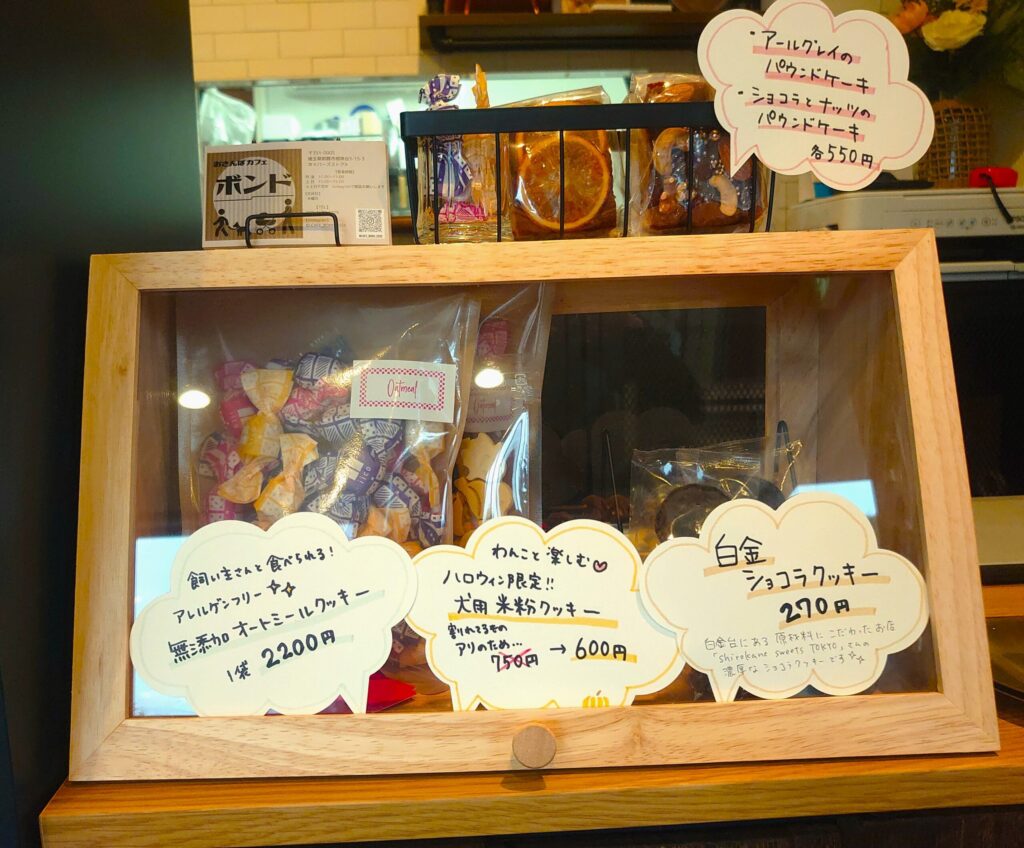 ・アールグレイの
パウンドケーキ
・ショコラとナッツの
パウンドケーキ
各550円
おさんぽカフェ
ボンド
Oatmeal
飼い主さんと食べられる!
アレルゲンフリー
無添加 オートミールクッキー
1袋 2200円
わんこと楽しむ♡
ハロウィン限定!!
犬用 米粉クッキー
割れてるもの
アリのため…
750円 → 600円
白金
ショコラクッキー
270円
白金台にある 原材料に こだわった お店
「shirokane sweets TOKYO」さんの
濃厚な ショコラクッキーです